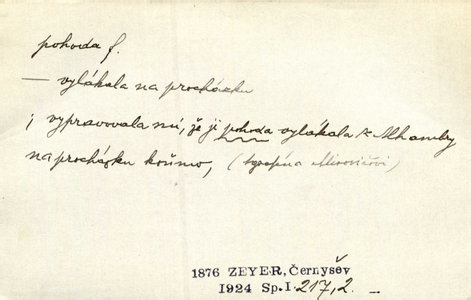 pohoda f.
— vylákala na procházku
; vypravovala mi, že ji pohoda vylákala z Alhambry
na procházku koňmo, (
1876 ZEYER, Černyšev
1924 Sp. I. 217, 2. —